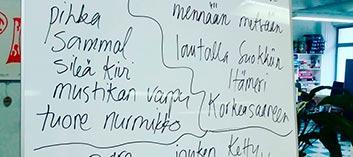 pihka
sammal
sileä kivi
mustikan varpu
tuore nurmikko
mennään metsään
lautalla Suokkiin
Itämeri
Korkeasaareen
joukon Kettu